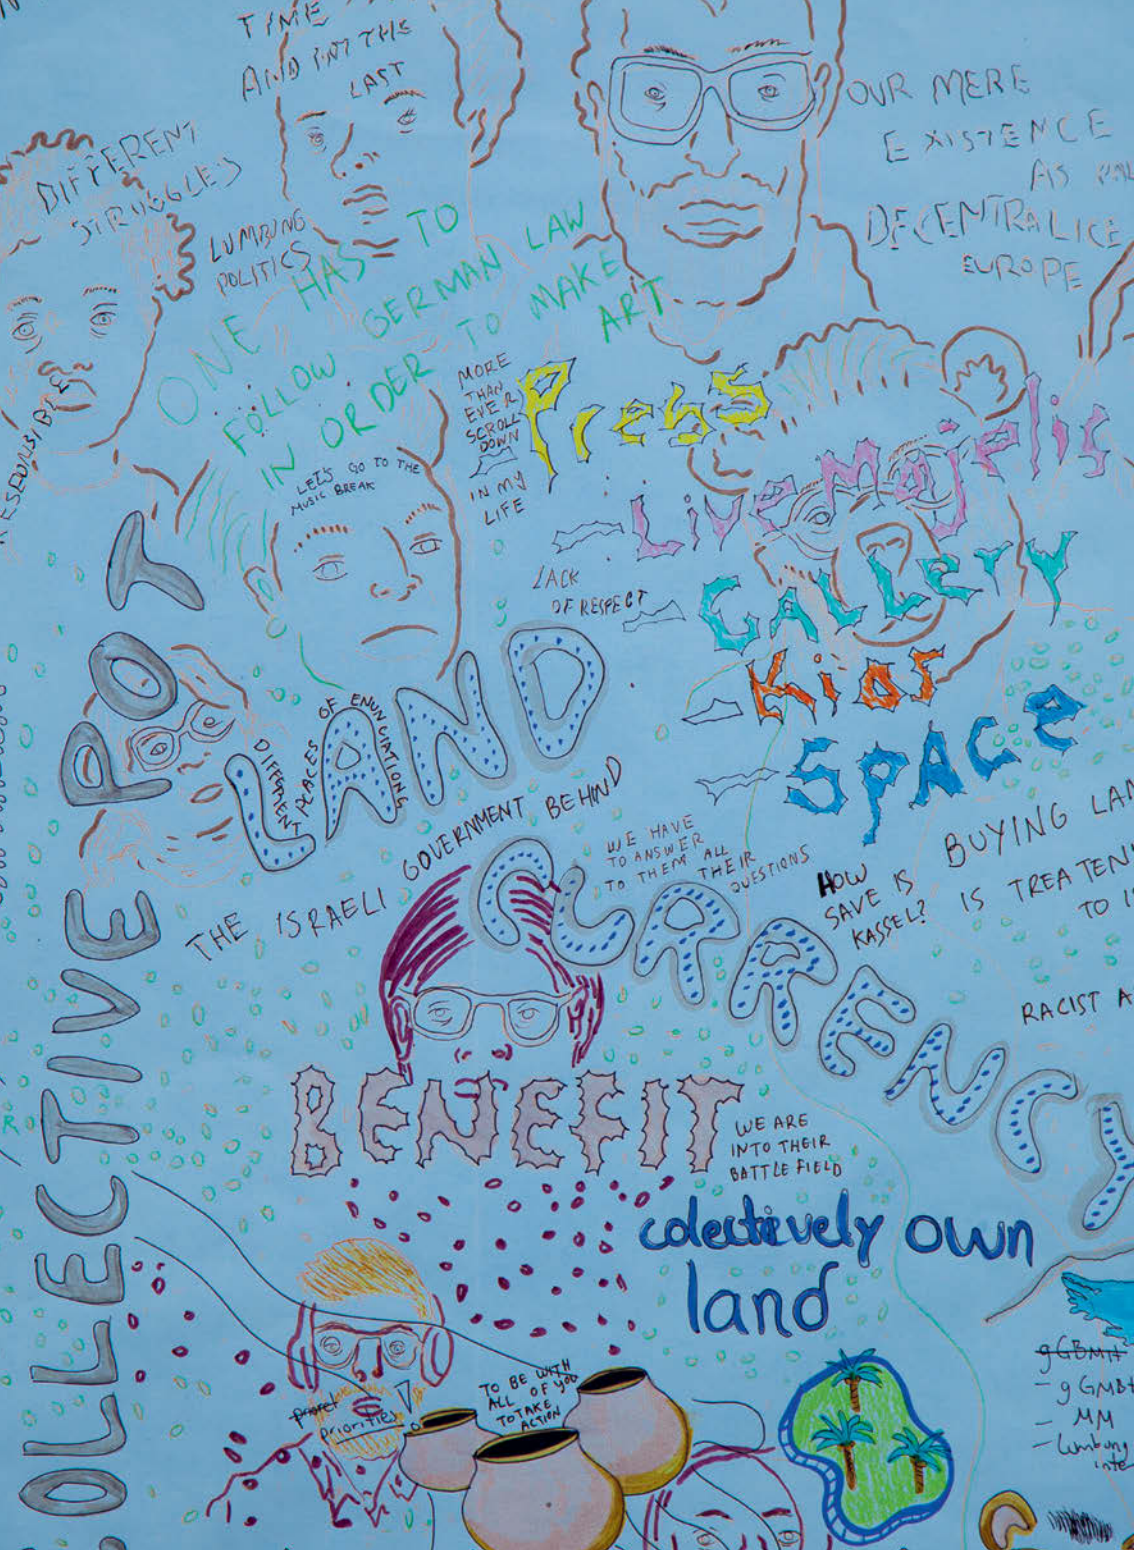 TIME
AND IN THE
LAST
DIFFERENT
STRUGGLES
LUMBUNG
POLITICS
OUR MERE
EXISTENCE
AS
DECENTRALICE
EUROPE
ONE HAS TO
FOLLOW GERMAN LAW
IN ORDER TO MAKE
ART
MORE
THAN
EVER
SCROLL
DOWN
IN MY
LIFE
LET'S GO TO THE
MUSIC BREAK
Press
LiveMajelis
GALLErY
Kios
SPACe
LACK
OF RESPECT
COLLECTIVE POT
LAND
DIFFERENT
PLACES
OF ENUNCIATIONS
THE ISRAELI GOVERNMENT BEHIND
WE HAVE
TO ANSWER
TO THEM ALL
THEIR
QUESTIONS
CURRENCY
HOW
SAVE IS
KASSEL?
BUYING LAN
IS TREATEN
TO
RACIST A
BENEFIT
WE ARE
INTO THEIR
BATTLE FIELD
colectively own
land
priorities
TO BE WITH
ALL OF YOU
TO TAKE
ACTION
gGBMH
- gGMBH
- MM
- Lumbung
inte